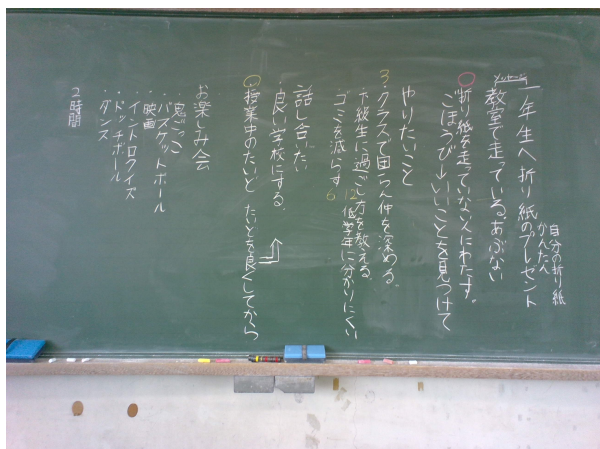 自分の折り紙
かんたん
一年生へ折り紙のプレゼント
メッセージ
教室で走っている。あぶない
折り紙を走っていない人にわたす。
ごほうび→いいことを見つけて
やりたいこと
3・クラスで団らん仲を深める。
下級生に過ごし方を教える
12低学年に分かりにくい
ゴミを減らす 6
話し合いたい
良い学校にする。
授業中のたいどたいどを良くしてから
お楽しみ会
・鬼ごっこ
・バスケットボール
・映画
・イントロクイズ
・ドッチボール
・ダンス
2時間